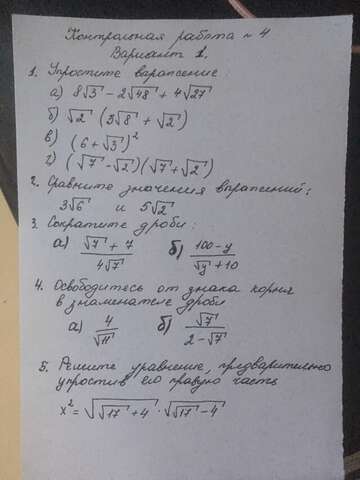 Контрольная работа № 4
Вариант 1.
1. Упростите выражение
а) 8√3 - 2√48 + 4√27
б) √2 (3√8 + √2)
в) (6 + √3)²
г) (√7 - √2)(√7 + √2)
2. Сравните значения выражений:
3√6 и 5√2
3. Сократите дроби:
а) (√7 + 7)/(4√7) б) (100 - y)/(√y + 10)
4. Освободитесь от знака корня
в знаменателе дроби
а) 4/√11 б) √7/(2 - √7)
5. Решите уравнение, предварительно
упростив его правую часть
x² = √(√17 + 4) · √(√17 - 4)